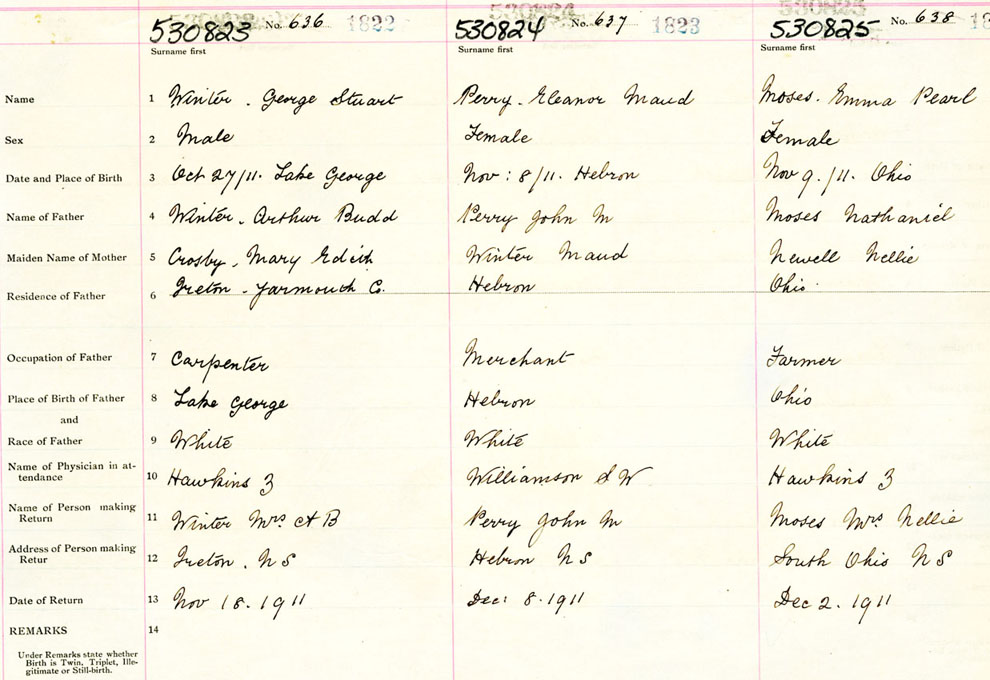 530823 No. 636 1822 530824 No. 637 1823 530825 No. 638
Surname first Surname first Surname first
Name 1 Winter. George Stuart Perry. Eleanor Maud Moses. Emma Pearl
Sex 2 Male Female Female
Date and Place of Birth 3 Oct 27/11. Lake George Nov: 8/11. Hebron Nov 9./11. Ohio
Name of Father 4 Winter. Arthur Budd Perry John M Moses Nathaniel
Maiden Name of Mother 5 Crosby. Mary Edith Winter Maud Newell Nellie
Residence of Father 6 Greton - Yarmouth Co. Hebron Ohio.
Occupation of Father 7 Carpenter Merchant Farmer
Place of Birth of Father 8 Lake George Hebron Ohio
and
Race of Father 9 White White White
Name of Physician in at-
tendance 10 Hawkins Z Williamson S W Hawkins Z
Name of Person making
Return 11 Winter Mrs A B Perry John M Moses Mrs Nellie
Address of Person making
Retur 12 Greton. N S Hebron N S South Ohio N S
Date of Return 13 Nov 18. 1911 Dec: 8. 1911 Dec 2. 1911
REMARKS 14
Under Remarks state whether
Birth is Twin, Triplet, Ille-
gitimate or Still-birth.